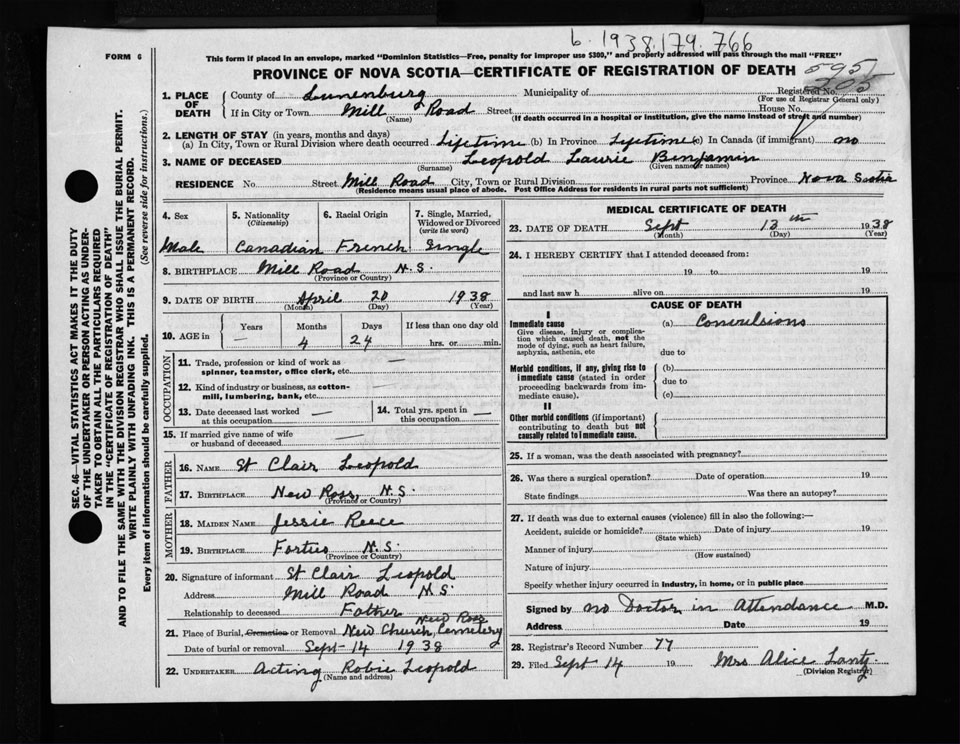 6.1938.179.766
FORM 6
This form if placed in an envelope, marked "Dominion Statistics—Free, penalty for improper use $300," and properly addressed will pass through the mail "FREE"
PROVINCE OF NOVA SCOTIA—CERTIFICATE OF REGISTRATION OF DEATH
595
Registered No.
(For use of Registrar General only)
1. PLACE OF DEATH County of Lunenburg Municipality of
If in City or Town Mill Road Street House No.
(Name) (If death occurred in a hospital or institution, give the name instead of street and number)
2. LENGTH OF STAY (in years, months and days)
(a) In City, Town or Rural Division where death occurred Lifetime (b) In Province Lifetime (c) In Canada (if immigrant) no
3. NAME OF DECEASED Leopold Laurie Benjamin
(Surname) (Given name or names)
RESIDENCE No. Street Mill Road City, Town or Rural Division Province Nova Scotia
(Residence means usual place of abode. Post Office Address for residents in rural parts not sufficient)
4. Sex 5. Nationality (Citizenship) 6. Racial Origin 7. Single, Married, Widowed or Divorced (write the word)
Male Canadian French Single
8. BIRTHPLACE Mill Road N.S.
(Province or Country)
9. DATE OF BIRTH April 20 1938
(Month) (Day) (Year)
10. AGE in Years Months Days If less than one day old
— 4 24 hrs. or min.
OCCUPATION
11. Trade, profession or kind of work as spinner, teamster, office clerk, etc. —
12. Kind of industry or business, as cotton-mill, lumbering, bank, etc. —
13. Date deceased last worked at this occupation — 14. Total yrs. spent in this occupation —
15. If married give name of wife or husband of deceased —
FATHER
16. NAME St Clair Leopold
17. BIRTHPLACE New Ross, N.S.
(Province or Country)
MOTHER
18. MAIDEN NAME Jessie Reece
19. BIRTHPLACE Forties N.S.
(Province or Country)
20. Signature of informant St Clair Leopold
Address Mill Road N.S.
Relationship to deceased Father
New Ross
21. Place of Burial, Cremation or Removal New Church, Cemetery
Date of burial or removal Sept 14 1938
22. UNDERTAKER Acting Robie Leopold
(Name and address)
MEDICAL CERTIFICATE OF DEATH
23. DATE OF DEATH Sept 13th 1938
(Month) (Day) (Year)
24. I HEREBY CERTIFY that I attended deceased from:
19 to 19
and last saw h alive on 19
CAUSE OF DEATH
I
Immediate cause (a) Convulsions
Give disease, injury or complication which caused death, not the mode of dying, such as heart failure, asphyxia, asthenia, etc
due to
Morbid conditions, if any, giving rise to immediate cause (stated in order proceeding backwards from immediate cause).
(b)
due to
(c)
II
Other morbid conditions (if important) contributing to death but not causally related to immediate cause.
25. If a woman, was the death associated with pregnancy?
26. Was there a surgical operation? Date of operation 19
State findings Was there an autopsy?
27. If death was due to external causes (violence) fill in also the following:—
Accident, suicide or homicide? Date of injury 19
(State which)
Manner of injury
(How sustained)
Nature of injury
Specify whether injury occurred in industry, in home, or in public place
Signed by no Doctor in Attendance M.D.
Address Date 19
28. Registrar's Record Number 77
29. Filed Sept 14 19 Mrs Alice Lantz
(Division Registrar)
SEC. 46—VITAL STATISTICS ACT MAKES IT THE DUTY
OF THE UNDERTAKER OR PERSON ACTING AS UNDERTAKER TO OBTAIN ALL THE PARTICULARS REQUIRED
IN THE "CERTIFICATE OF REGISTRATION OF DEATH"
AND TO FILE THE SAME WITH THE DIVISION REGISTRAR WHO SHALL ISSUE THE BURIAL PERMIT.
WRITE PLAINLY WITH UNFADING INK. THIS IS A PERMANENT RECORD.
Every item of information should be carefully supplied. (See reverse side for instructions.)